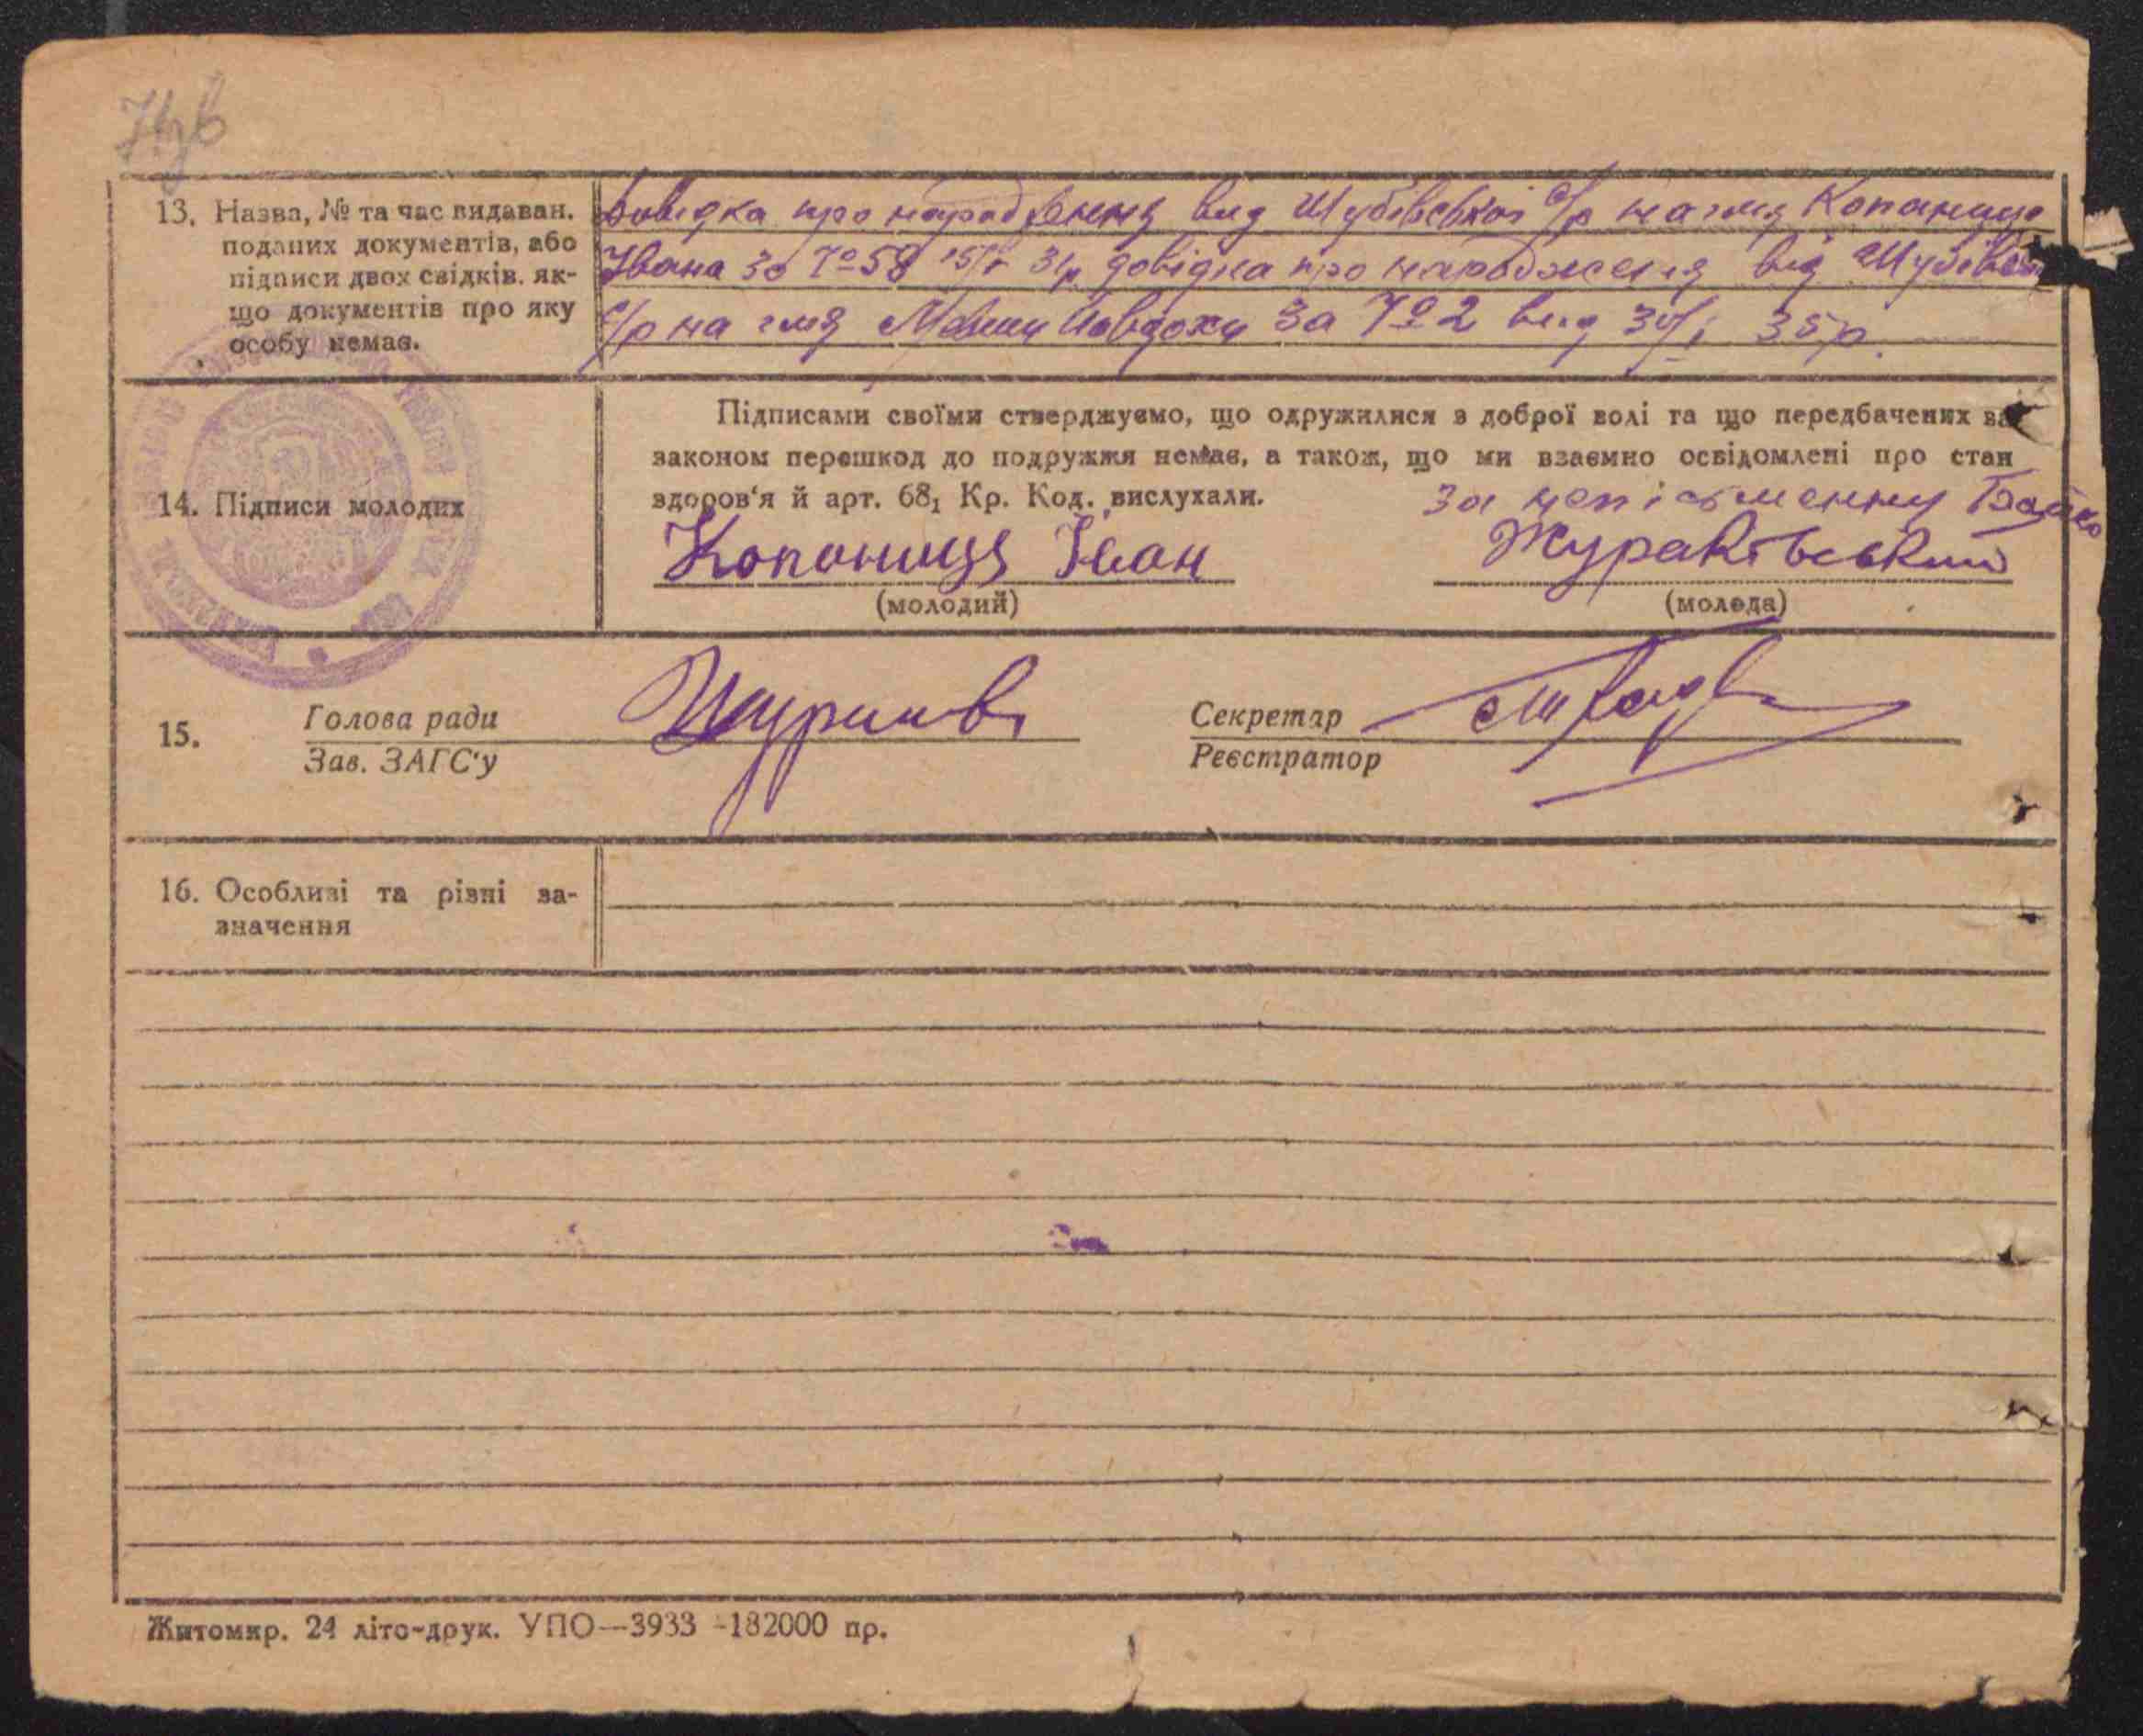 13. Назва, № та час видаван.
поданих документів, або
підписи двох свідків, як-
що документів про яку
особу немає.
Довидка про народження вид Шубівської с/р на имя Копаниця
Івана за № 58 15/I 31р. довідка про народження від Шубівської
с/р на имя Йовдохи за № 2 вид 30/I 35р.
14. Підписи молодих
Підписами своїми стверджуємо, що одружилися з доброї волі та що передбачених за
законом перешкод до подружжя немає, а також, що ми взаємно освідомлені про стан
здоров'я й арт. 68₁ Кр. Код. вислухали.
За неписьменну
Копаниця Іван
Жураківський
(молодий)
(молода)
15.
Голова ради
Зав. ЗАГС'у
Секретар
Реєстратор
16. Особливі та різні за-
значення
Житомир. 24 літо-друк. УПО—3933 -182000 пр.